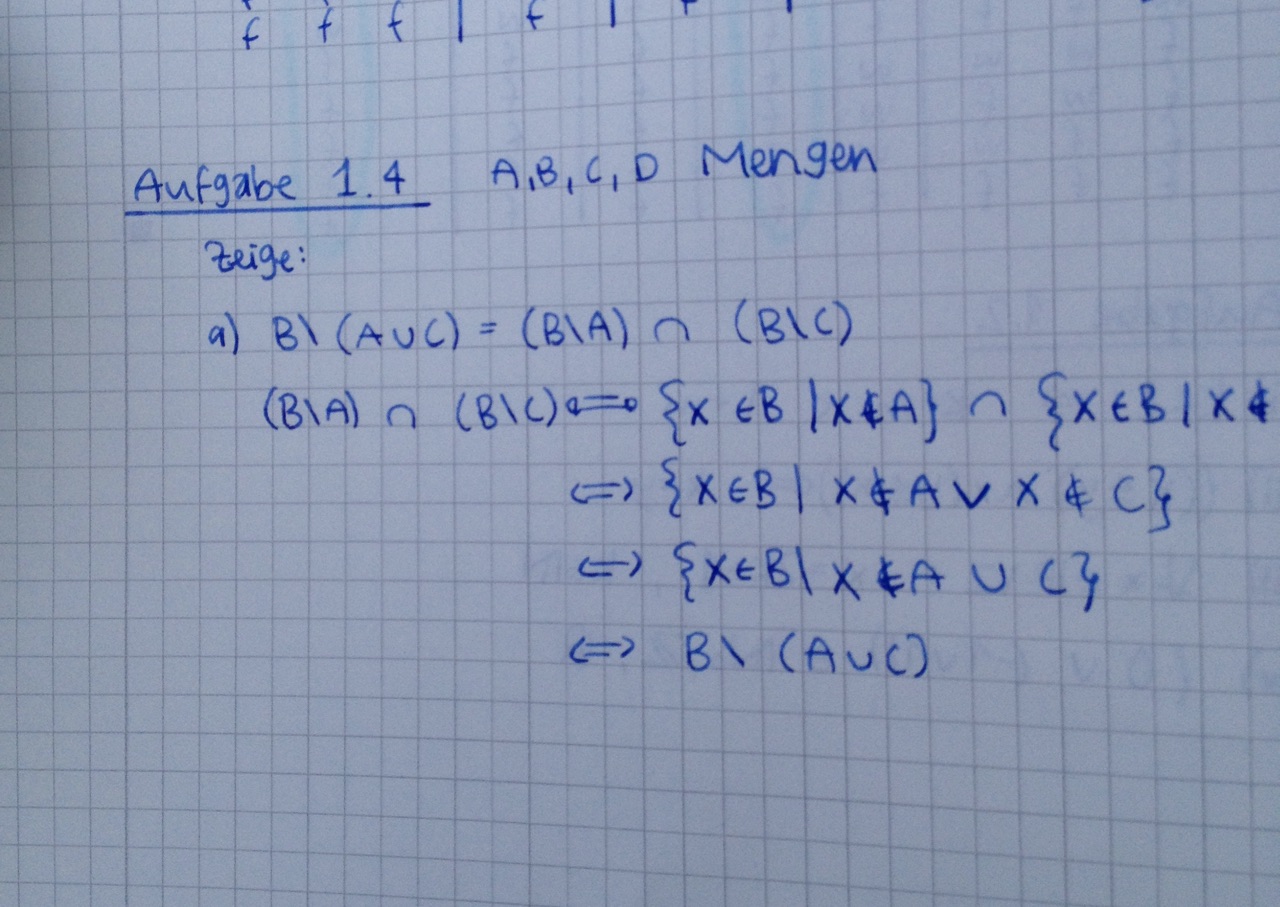 f f f | f |
Aufgabe 1.4 A, B, C, D Mengen
Zeige:
a) B\(A∪C) = (B\A) ∩ (B\C)
(B\A) ∩ (B\C) ⟺ {x ∈ B | x ∉ A} ∩ {x ∈ B | x ∉
⟺ {x ∈ B | x ∉ A ∨ x ∉ C}
⟺ {x ∈ B | x ∉ A ∪ C}
⟺ B\(A∪C)